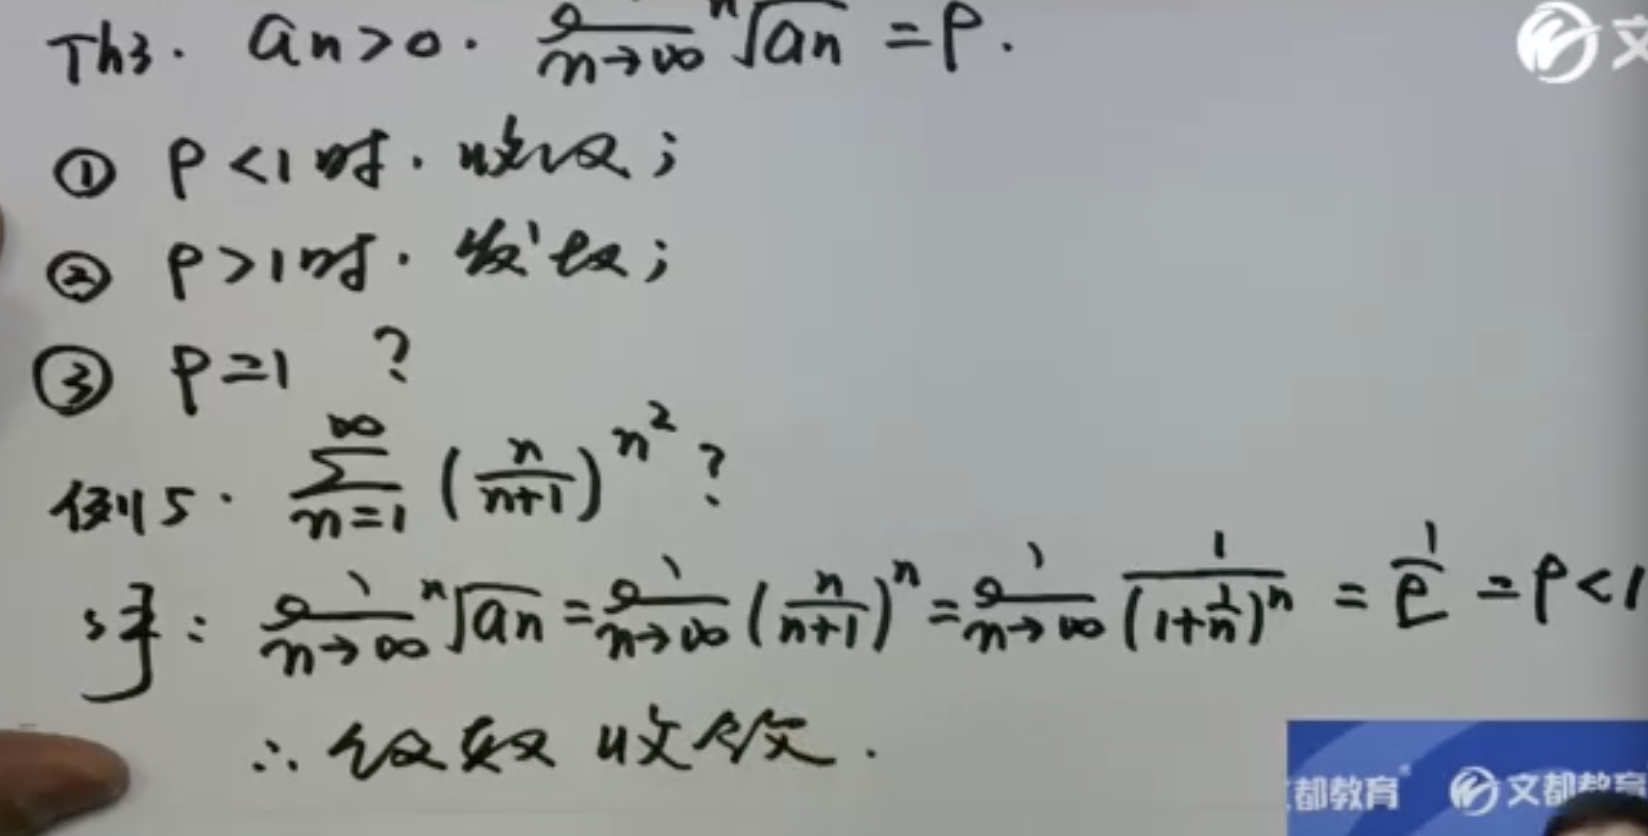 Th3. aₙ>0. lim_{n→∞} ⁿ√aₙ = ρ.
① ρ<1时. 收敛;
② ρ>1时. 发散;
③ ρ=1 ?
例5. ∑_{n=1}^{∞} (n/(n+1))^{n²} ?
解: lim_{n→∞} ⁿ√aₙ = lim_{n→∞} (n/(n+1))ⁿ = lim_{n→∞} 1/(1+1/n)ⁿ = 1/e = ρ<1
∴ 级数收敛.
文
都教育 文都教育